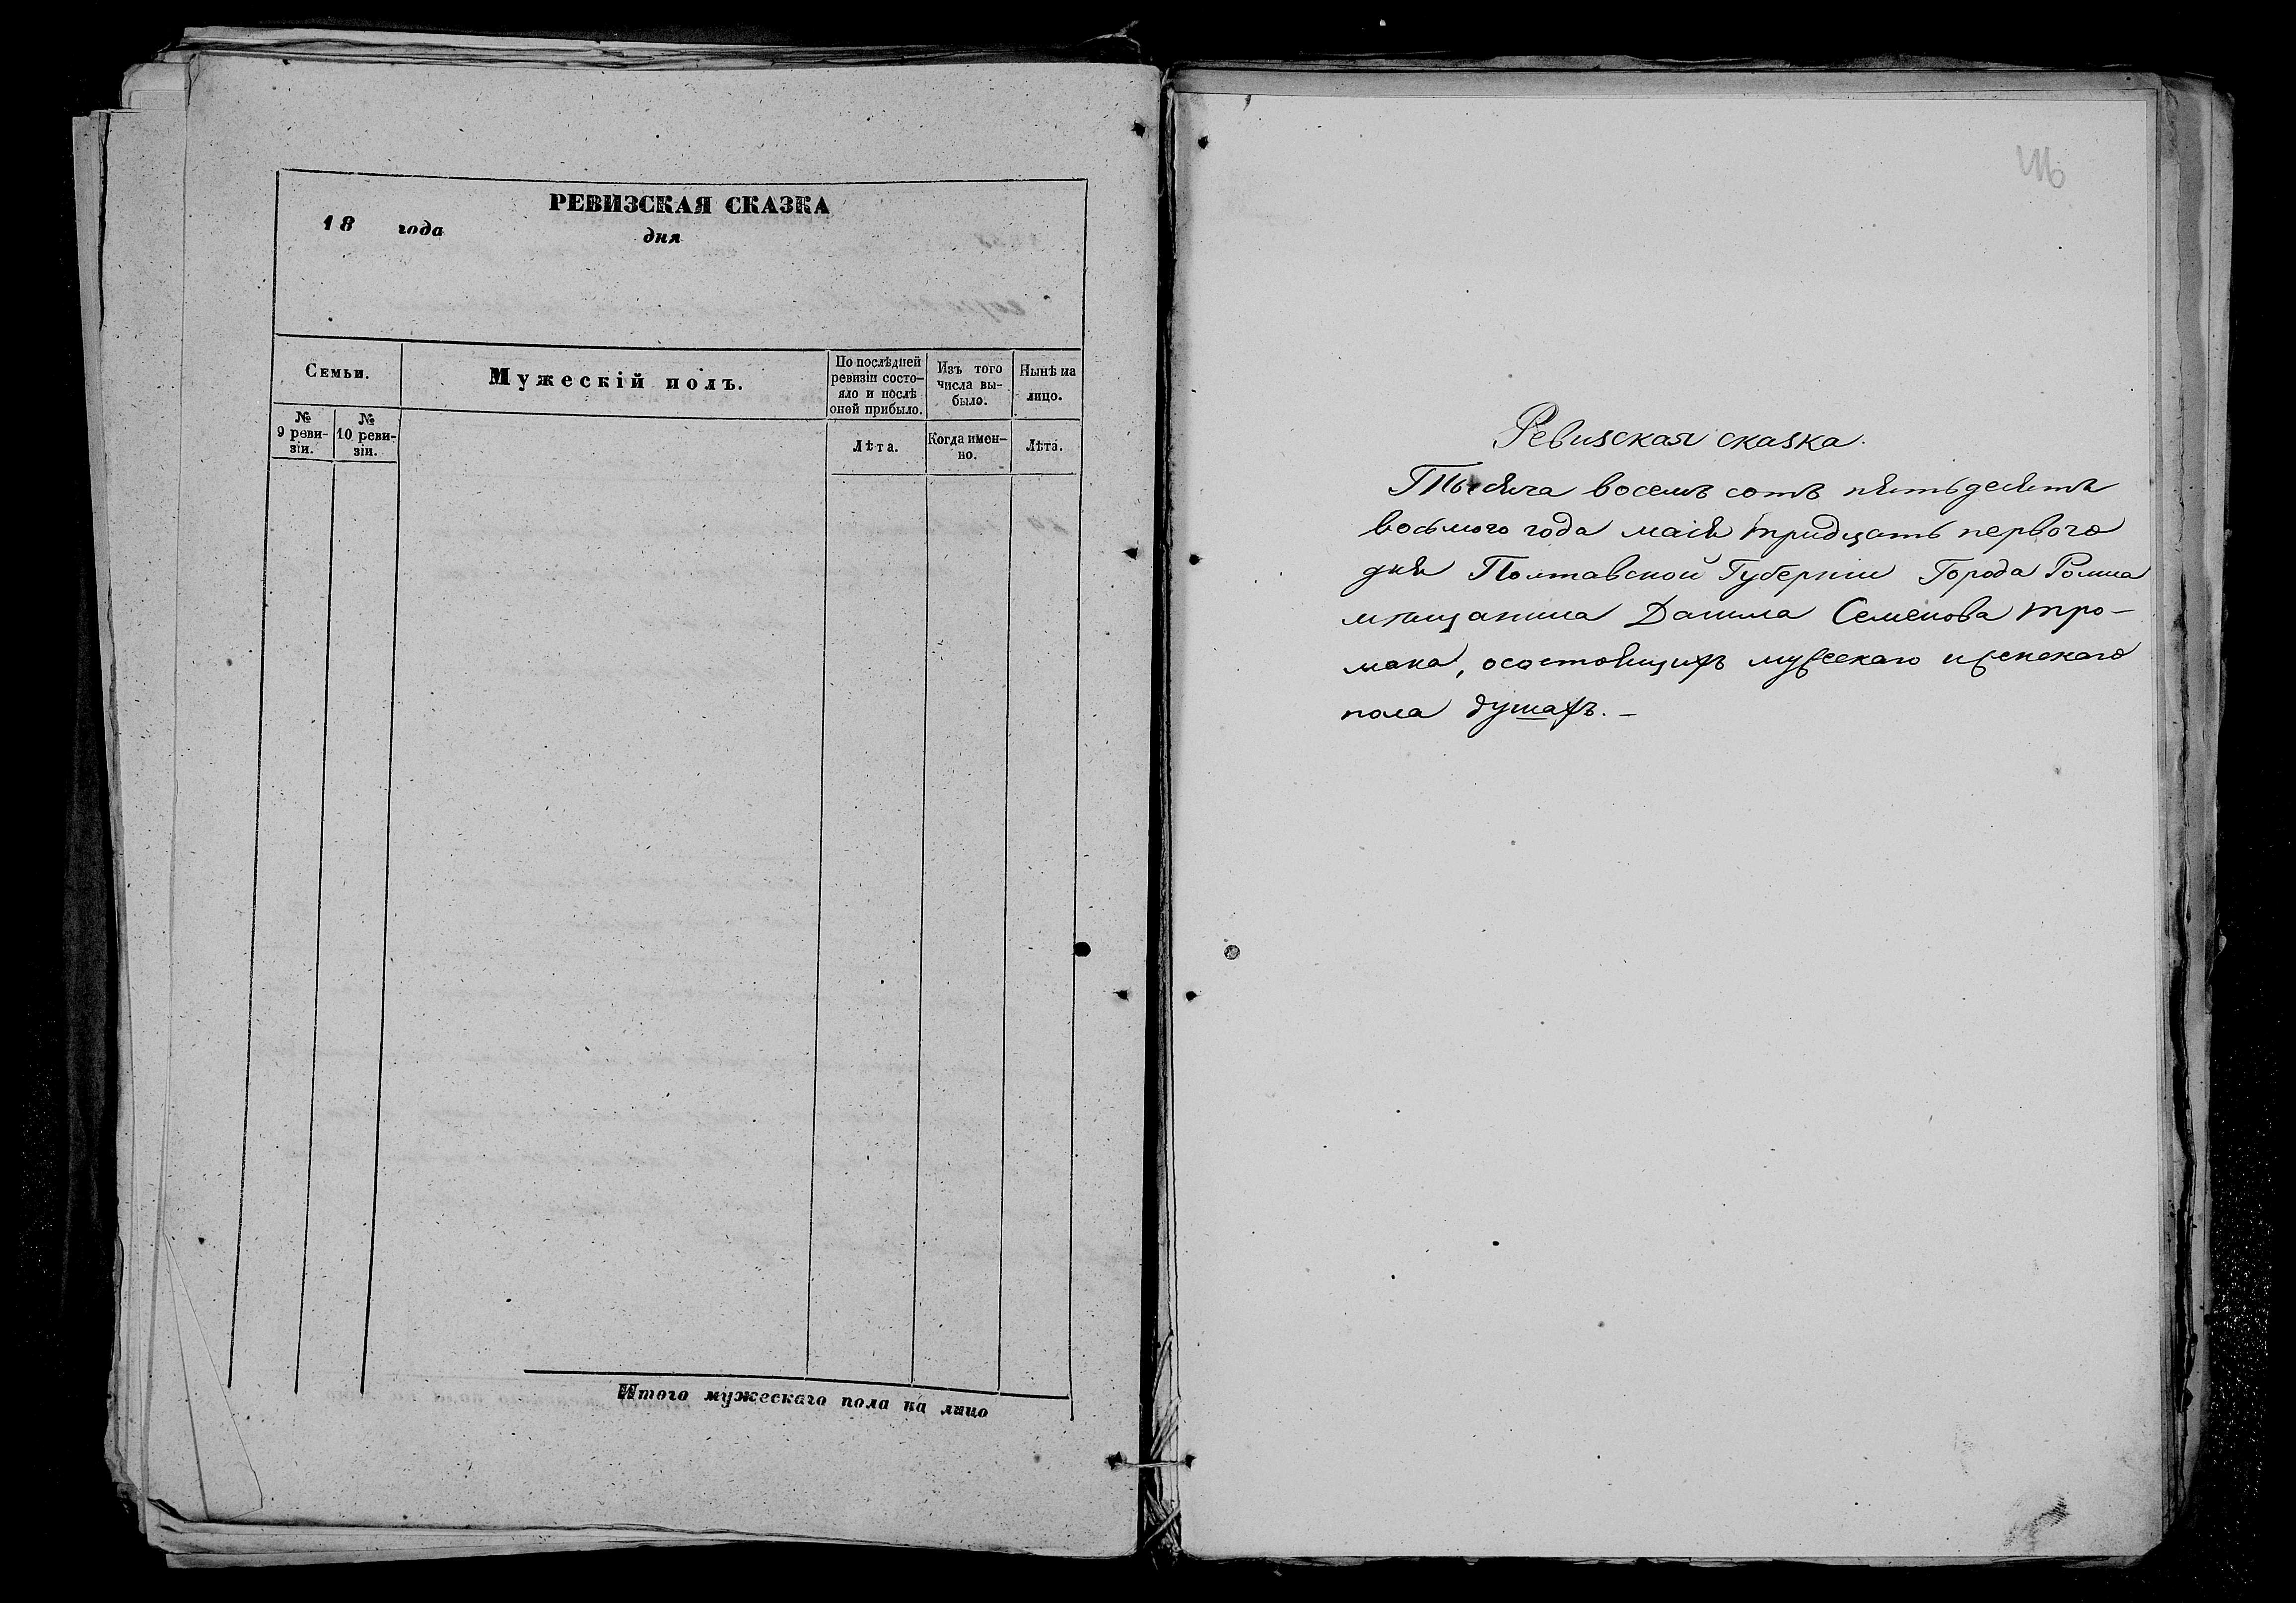 РЕВИЗСКАЯ СКАЗКА
18 года дня
Семьи.
№ 9 реви-
зіи.
№ 10 реви-
зіи.
Мужескій полъ.
По послѣдней
ревизіи состо-
яло и послѣ
оной прибыло.
Лѣта.
Изъ того
числа вы-
было.
Когда имен-
но.
Нынѣ на
лицо.
Лѣта.
Итого мужескаго пола на лицо
Ревизская сказка.
Тысяча восемъ сотъ пятьдесятъ
восьмого года маія тридцать первого
дня Полтавской Губерніи Города Ромна
мѣщанина Данила Семенова Тро-
мака, осостоящихъ мужескаго иженскаго
пола душахъ. –